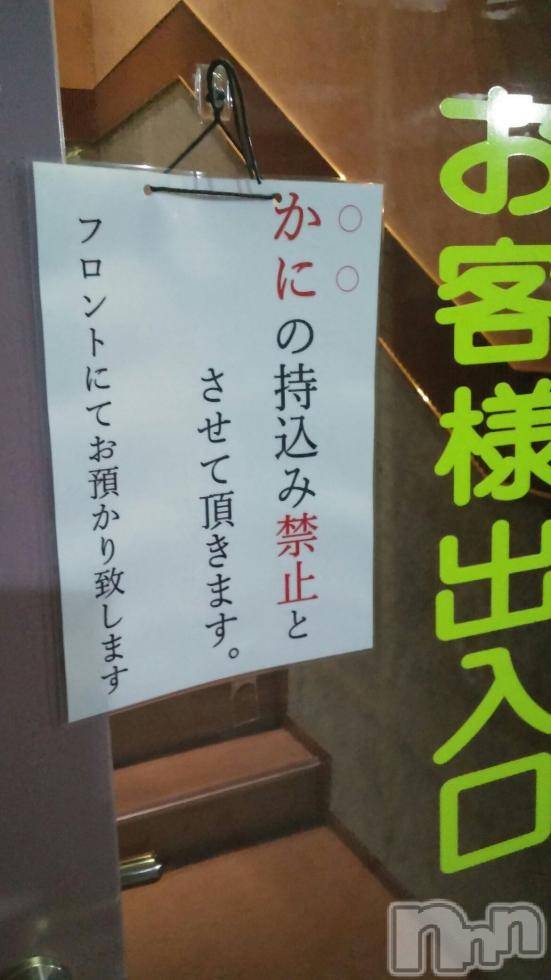 お客様出入口
○○
かにの持込み禁止と
させて頂きます。
フロントにてお預かり致します
nnn